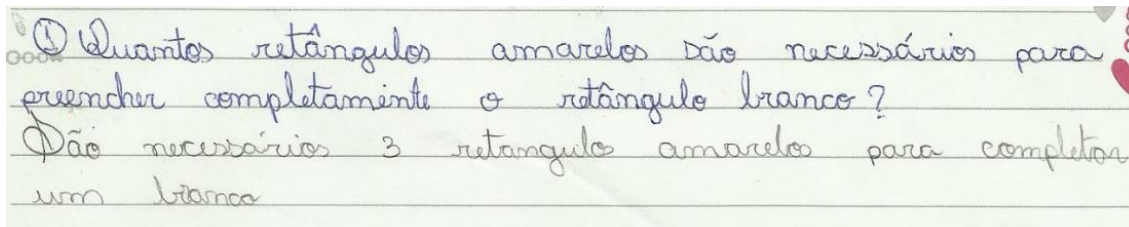 ① Quantos retângulos amarelos são necessários para
preencher completamente o retângulo branco?
São necessários 3 retangulo amarelos para completar
um branco